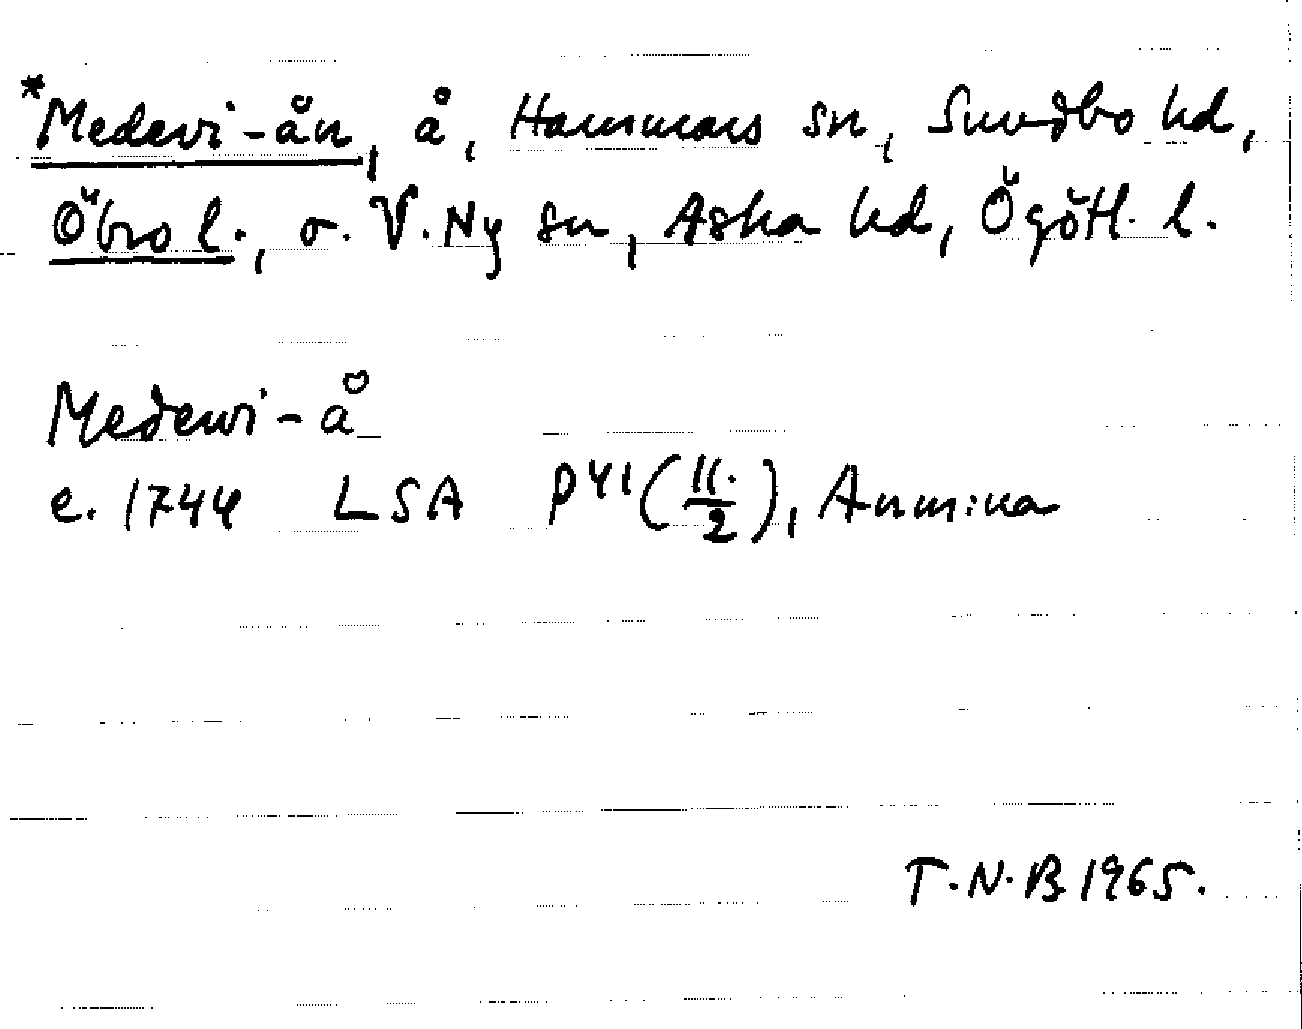 *Medevi-ån, å, Hammars sn, Sundbo hd,
Öbro l., o. V. Ny sn, Aska hd, Ögötl. l.
Medewi-å
e. 1744 LSA P41 (11./2), Anmina
T.N.B 1965.